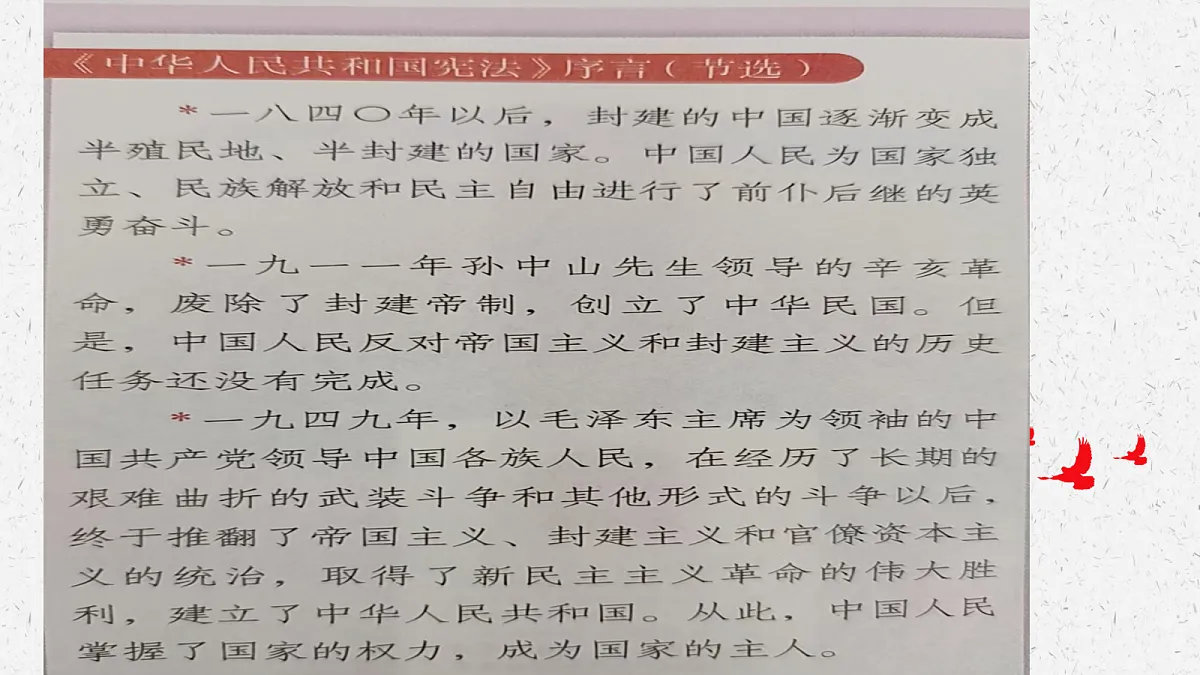 《中华人民共和国宪法》序言（节选）
*一八四〇年以后，封建的中国逐渐变成
半殖民地、半封建的国家。中国人民为国家独
立、民族解放和民主自由进行了前仆后继的英
勇奋斗。
*一九一一年孙中山先生领导的辛亥革
命，废除了封建帝制，创立了中华民国。但
是，中国人民反对帝国主义和封建主义的历史
任务还没有完成。
*一九四九年，以毛泽东主席为领袖的中
国共产党领导中国各族人民，在经历了长期的
艰难曲折的武装斗争和其他形式的斗争以后，
终于推翻了帝国主义、封建主义和官僚资本主
义的统治，取得了新民主主义革命的伟大胜
利，建立了中华人民共和国。从此，中国人民
掌握了国家的权力，成为国家的主人。